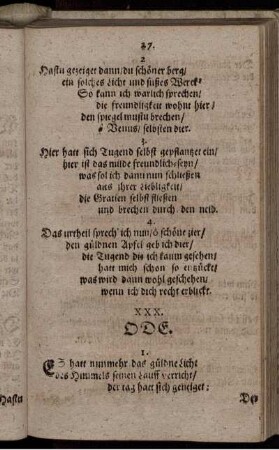 27.
2
Hastu gezeiget dann/ du schöner berg/
ein solches Licht und süßes Werck?
So kann ich warlich sprechen/
die freundligkeit wohnt hier/
den spiegel mustu brechen/
ô Venus/ selbsten dier.
3.
Hier hatt sich Tugend selbst gepflantzet ein/
hier ist das milde freundlichesein/
was sol ich dann nun schließen
aus ihrer Liebligkeit/
die Gratien selbst fließen
und brechen durch den neid.
4.
Das urtheil sprech' ich nun/ ô schöne zier/
den güldnen Apfel geb ich dier/
die Tugend die ich kaum gesehen/
hatt mich schon so entzückt/
was wird dann wohl geschehen/
wenn ich dich recht erblickt.
XXX.
ODE.
1.
ES hatt nunmehr das güldne Licht
des Himmels seinen Lauff verricht/
der tag hatt sich geneiget:
Hastu
Der